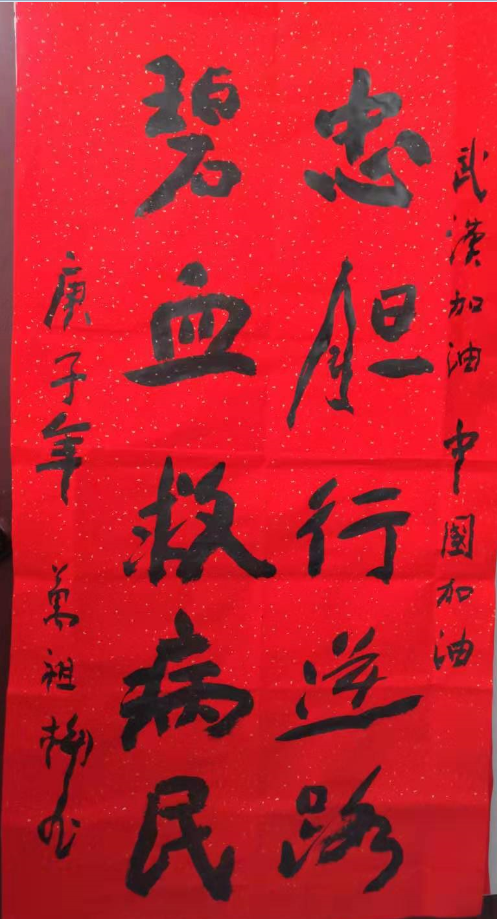 武漢加油中國加油
忠胆行逆路
碧血救病民
庚子年 萬祖梅书